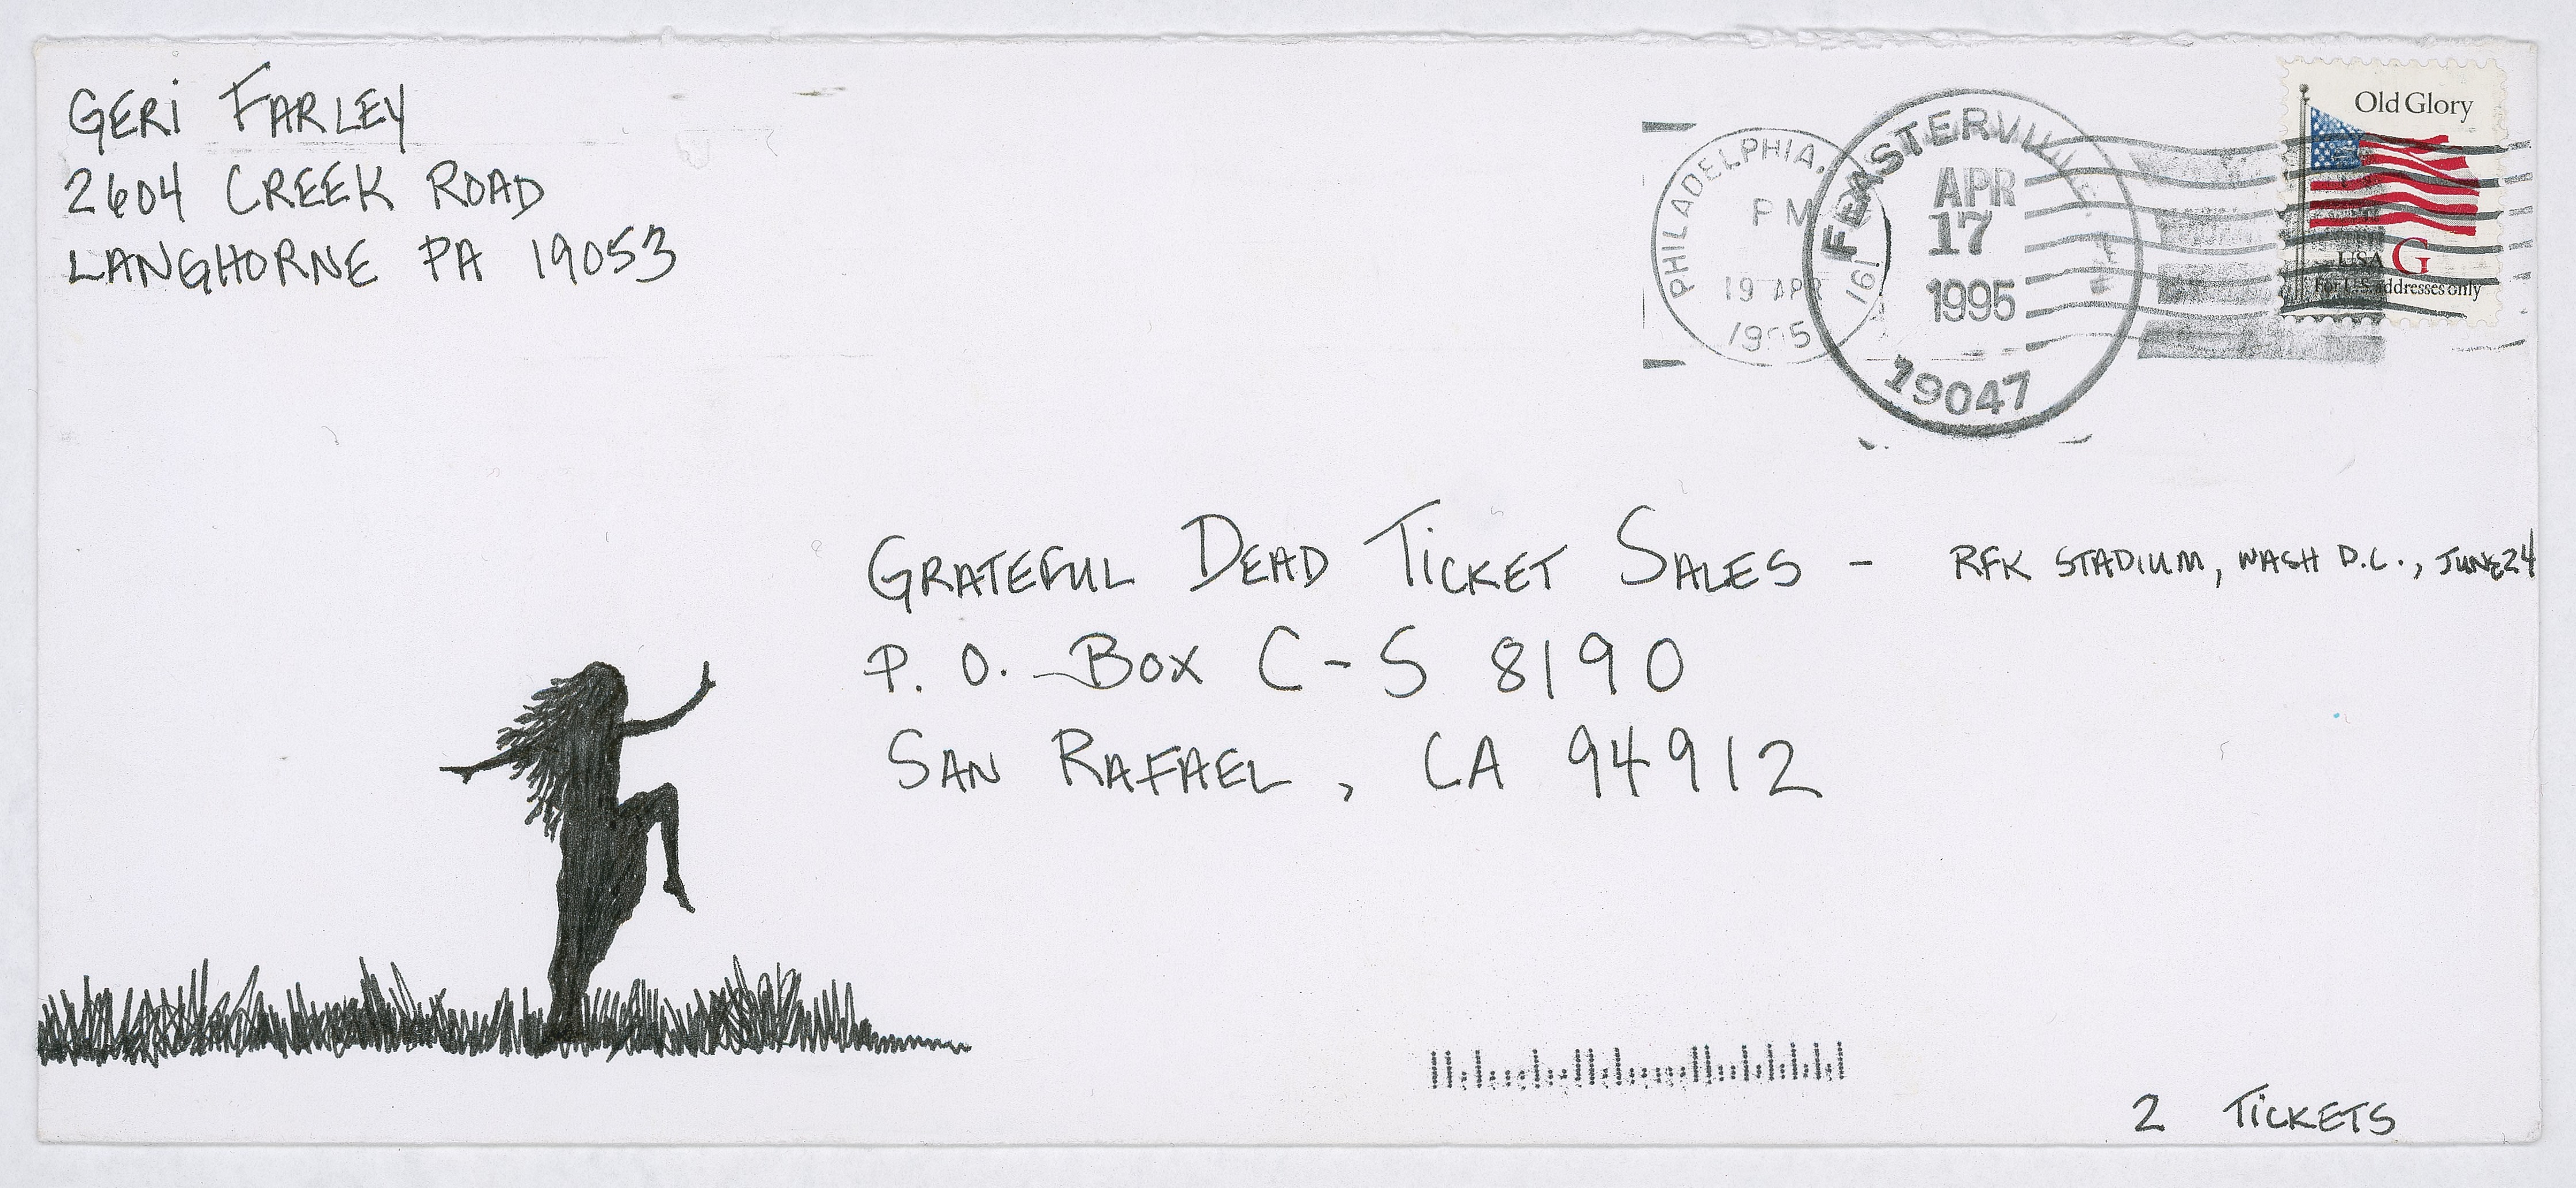 GERI FARLEY
2604 CREEK ROAD
LANGHORNE PA 19053
PHILADELPHIA,
PM
19 APR
1995
191
FEASTERVILLE
APR
17
1995
19047
Old Glory
USA G
For U.S. addresses only
GRATEFUL DEAD TICKET SALES - RFK STADIUM, WASH D.C., JUNE 24
P. O. BOX C-S 8190
SAN RAFAEL, CA 94912
2 TICKETS